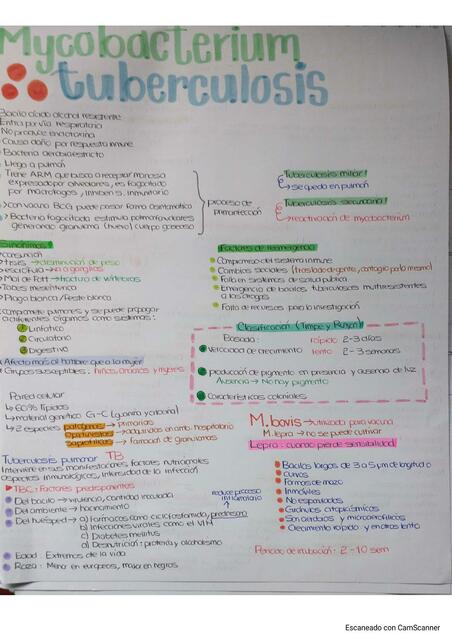 Mycobacterium
tuberculosis
Bacilo ácido alcohol resistente
Entra por vía respiratoria
No produce endotoxina
Causa daño por respuesta inmune
Bacteria aerobia estricta
Llega a pulmón
Tiene ARM que busca receptor manosa
expresado por alveolares, es fagocitada
por macrófagos, inhiben s. inmunitario
con vacuna BCG puede pasar forma asintomática
Bacteria fagocitada estimula polimorfonucleares
generando granuloma (huevo) cuerpo gaseoso
proceso de
primoinfección
Tuberculosis miliar
se quedo en pulmón
Tuberculosis secundaria
reactivación de mycobacterium
Sinónimos
consunción
tisis → disminución de peso
escrófula → a ganglios
Mal de Pott → fractura de vértebras
Tabes mesentérica
Plaga blanca / Peste blanca
Compromete pulmones y se puede propagar
a diferentes órganos como sistemas:
1 Linfático
2 Circulatorio
3 Digestivo
Factores de reemergencia
Compromiso del sistema inmune
Cambios sociales (traslado de gente, contagio por lo mismo)
Falla en sistemas de salud pública
Emergencia de bacilos tuberculosos multiresistentes
a las drogas
Falta de recursos para la investigación
Clasificación (Timpe y Runyon)
Basada: rápido 2-3 días
Velocidad de crecimiento lento 2-3 semanas
producción de pigmento en presencia y ausencia de luz
Ausencia → No hay pigmento
Características coloniales
Afecta más al hombre que a la mujer
Grupos susceptibles: niños, ancianos y mujeres
Pared celular
60% lípidos
material genético G-C (guanina y citocina)
2 especies patógenas → primarias
Oportunistas → adquiridas en amb. hospitalario
saprofíticas → forman de granulomas
M. bovis → utilizada para vacuna
M. lepra → no se puede cultivar
Lepra: cuando pierde sensibilidad
Tuberculosis pulmonar TB
Interviene en sus manifestaciones, factores nutricionales
aspectos inmunológicos, intensidad de la infección
TBC: Factores predisponentes
Del bacilo → virulencia, cantidad inoculada
Del ambiente → hacinamiento
Del huésped → a) Fármacos como ciclofosfamida, prednisona
b) Infecciones virales como el VIH
c) Diabetes mellitus
d) Desnutrición: proteína y alcoholismo
reduce proceso
inflamatorio
Edad: Extremos de la vida
Raza: Menor en europeos, mayor en negros
Bacilos largos de 3 a 5 µm de longitud
curvos
Formas de mazo
Inmóviles
No esporulados
Gránulos citoplásmicos
Son aerobios y microaerofílicos
Crecimiento rápido y en otros lento
Periodo de incubación: 2-10 sem
Escaneado con CamScanner